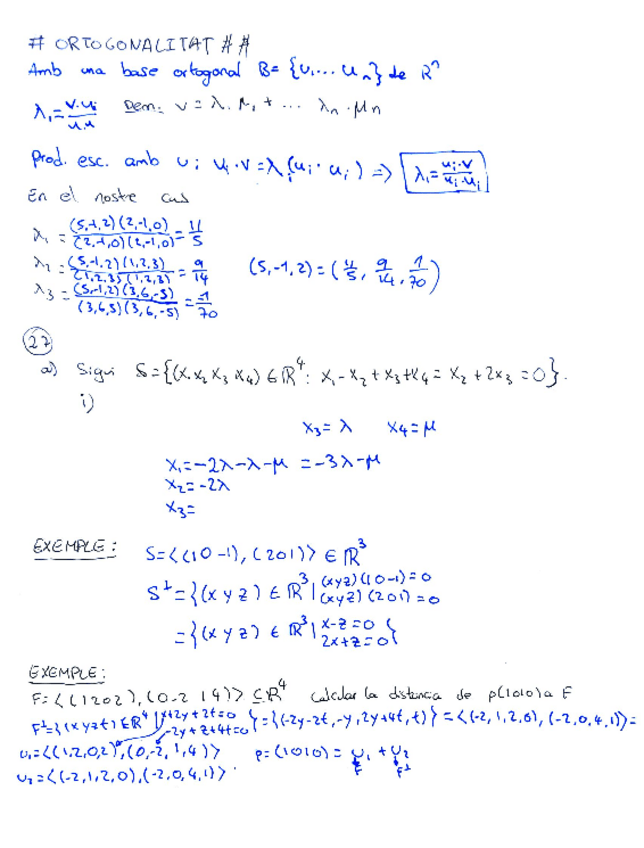 # ORTOGONALITAT ##
Amb una base ortogonal B = {u₁... uₙ} de Rⁿ
λ₁ = v·uᵢ / u·u Dem: v = λ₁·u₁ + ... λₙ·uₙ
Prod. esc. amb uᵢ uᵢ·v = λᵢ(uᵢ·uᵢ) => λᵢ = uᵢ·v / uᵢ·uᵢ
En el nostre cas
λ₁ = (5,-1,2)(2,-1,0) / (2,-1,0)(2,-1,0) = 11/5
λ₂ = (5,-1,2)(1,2,3) / (1,2,3)(1,2,3) = 9/14 (5,-1,2) = (11/5, 9/14, 1/70)
λ₃ = (5,-1,2)(3,6,-5) / (3,6,5)(3,6,-5) = -1/70
27
a) Sigui S = {(x₁ x₂ x₃ x₄) ∈ R⁴ : x₁ - x₂ + x₃ + x₄ = x₂ + 2x₃ = 0}.
i)
x₃ = λ x₄ = μ
x₁ = -2λ - λ - μ = -3λ - μ
x₂ = -2λ
x₃ =
EXEMPLE: S = <(1 0 -1), (2 0 1)> ∈ R³
S⊥ = {(x y z) ∈ R³ | (x y z)(1 0 -1) = 0
(x y z)(2 0 1) = 0
= {(x y z) ∈ R³ | x - z = 0
2x + z = 0}
EXEMPLE:
F = <(1 2 0 2), (0 -2 1 4)> ⊆ R⁴ calcular la distancia de p(1 0 1 0) a F
F⊥ = {(x y z t) ∈ R⁴ | x + 2y + 2t = 0
-2y + z + 4t = 0} = {(-2y-2t, -y, 2y+4t, t)} = <(-2,1,2,0), (-2,0,4,1)> =
u₁ = <(1,2,0,2), (0,-2,1,4)> p = (1 0 1 0) = u₁ + u₂
u₂ = <(-2,1,2,0), (-2,0,4,1)>. F F⊥